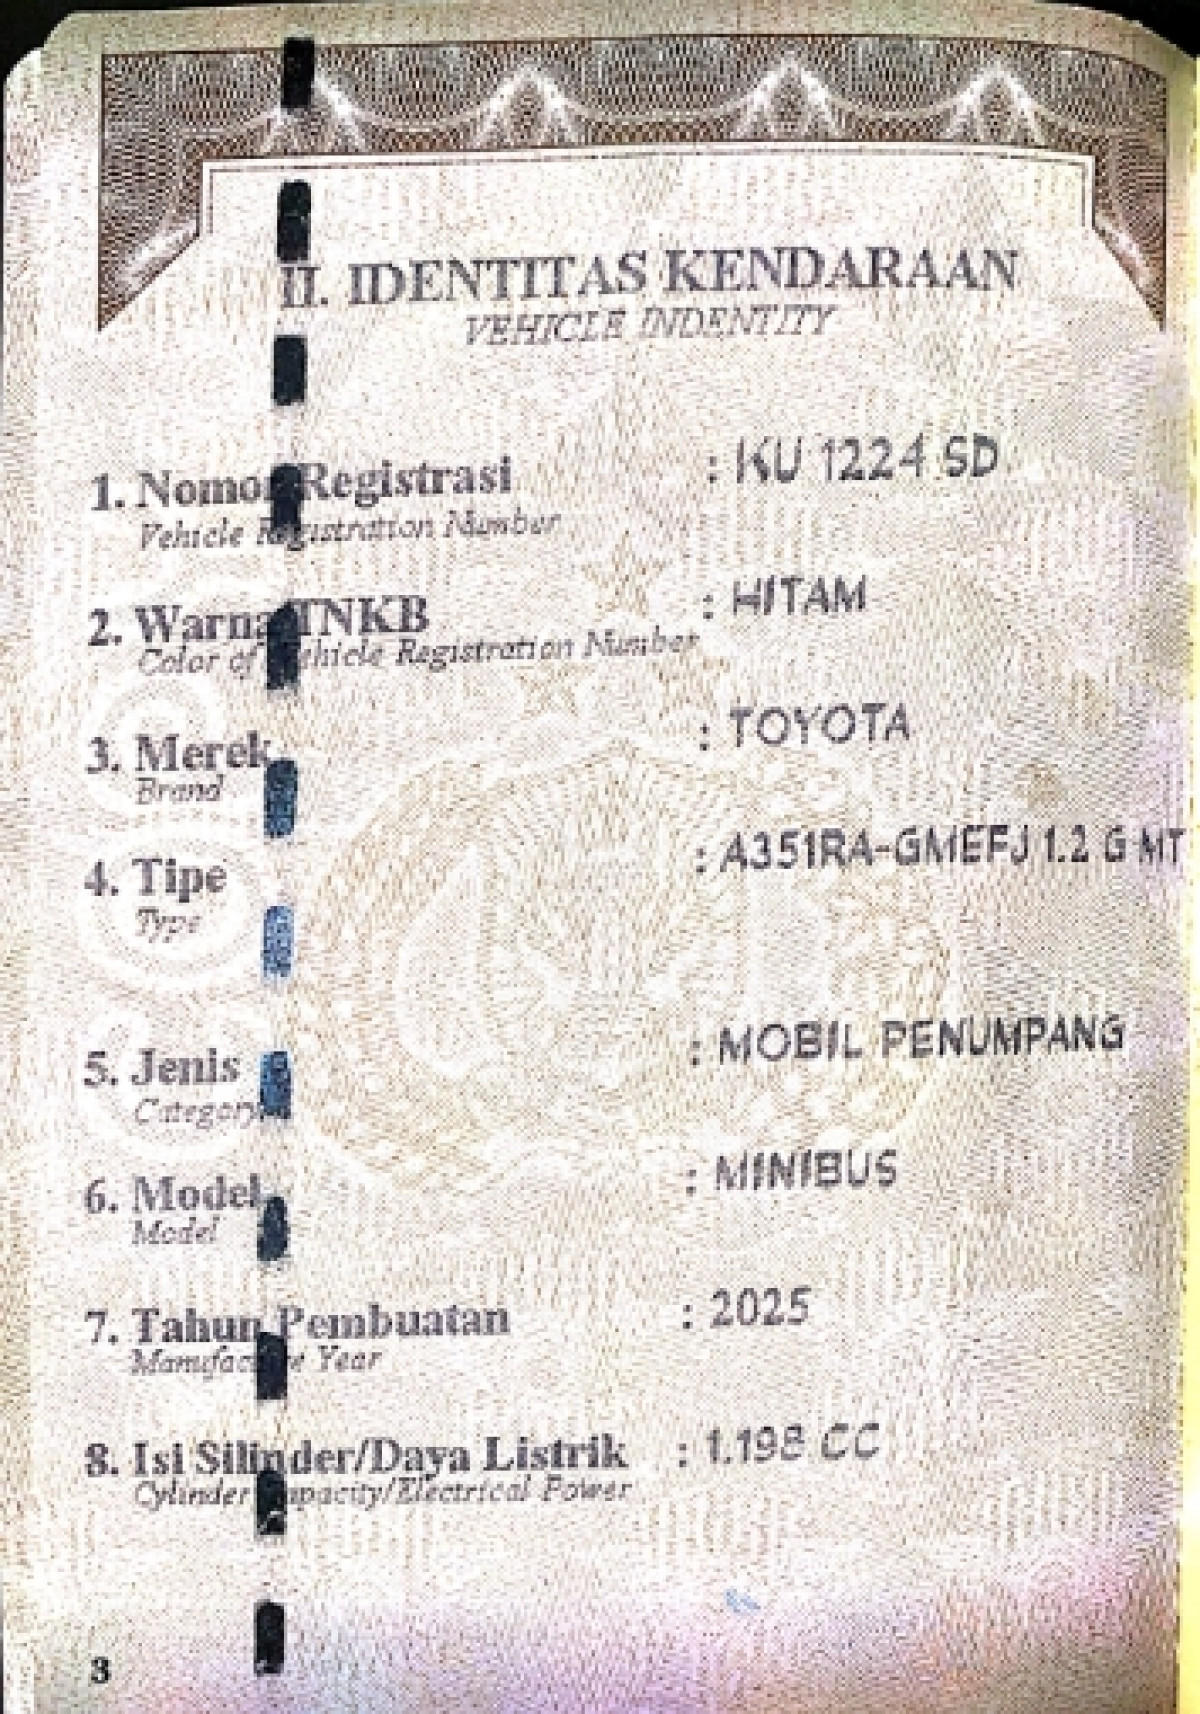 II. IDENTITAS KENDARAAN
VEHICLE INDENTITY
1. Nomor Registrasi : KU 1224 SD
Vehicle Registration Number
2. Warna TNKB : HITAM
Color of Vehicle Registration Number
3. Merek : TOYOTA
Brand
4. Tipe : A351RA-GMEFJ 1.2 G MT
Type
5. Jenis : MOBIL PENUMPANG
Category
6. Model : MINIBUS
Model
7. Tahun Pembuatan : 2025
Manufacture Year
8. Isi Silinder/Daya Listrik : 1.198 CC
Cylinder Capacity/Electrical Power
3